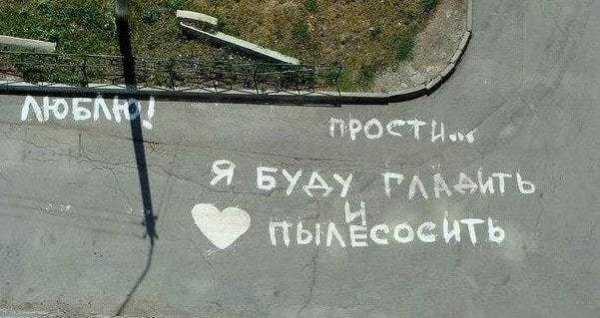 ЛЮБЛЮ!
ПРОСТИ...
Я БУДУ ГЛАДИТЬ
И
ПЫЛЕСОСИТЬ